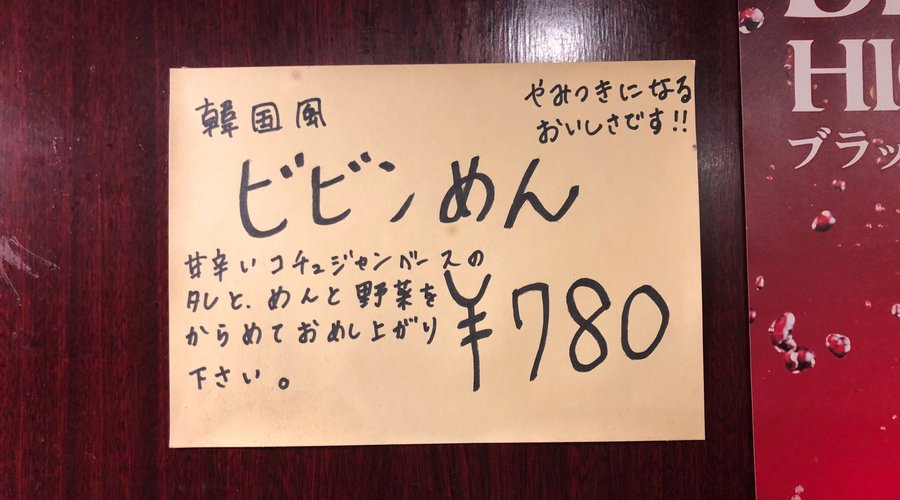 韓国風
やみつきになる
おいしさです!!
ビビンめん
甘辛いコチュジャンベースの
タレと、めんと野菜を
からめておめし上がり
下さい。
¥780
HI
ブラッ